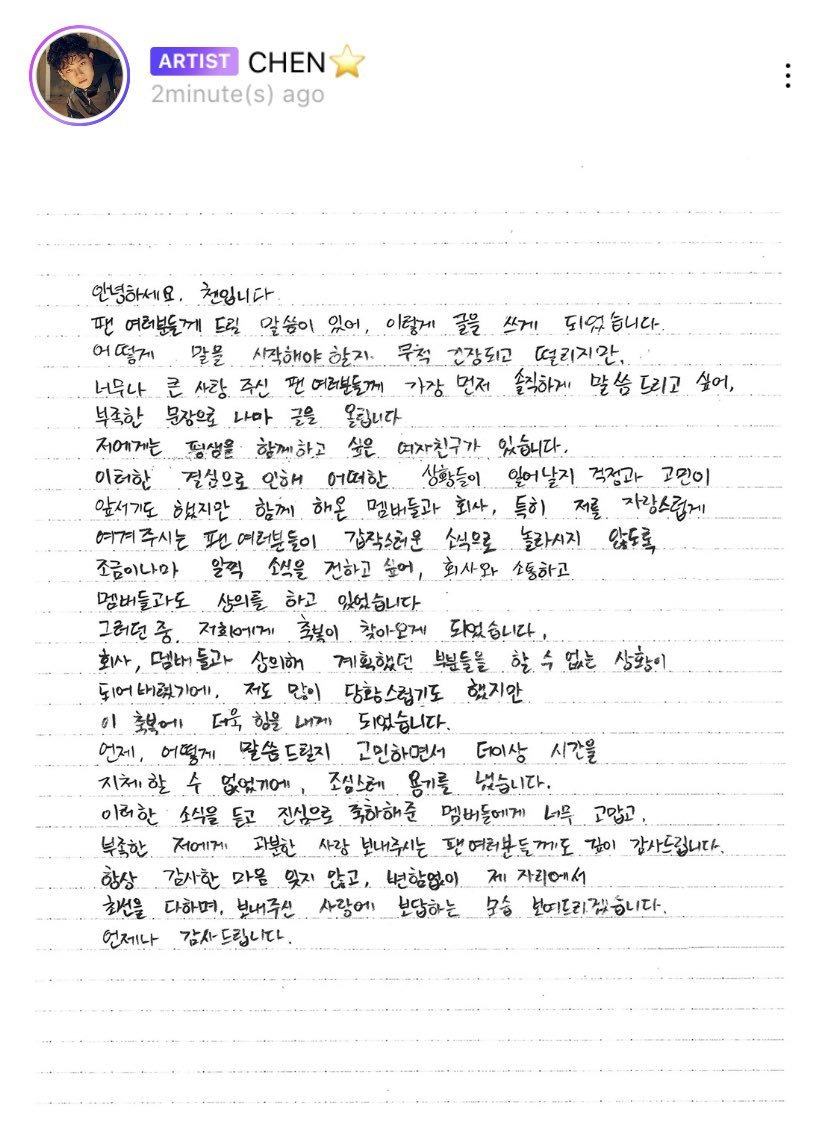 ARTIST CHEN⭐
2minute(s) ago
안녕하세요. 첸입니다
팬 여러분들께 드릴 말씀이 있어, 이렇게 글을 쓰게 되었습니다.
어떻게 말을 시작해야 할지 무척 긴장되고 떨리지만,
너무나 큰 사랑 주신 팬 여러분들께 가장 먼저 솔직하게 말씀 드리고 싶어,
부족한 문장으로 나마 글을 올립니다
저에게는 평생을 함께하고 싶은 여자친구가 있습니다.
이러한 결심으로 인해 어떠한 상황들이 일어날지 걱정과 고민이
앞서기도 했지만 함께 해온 멤버들과 회사, 특히 저를 자랑스럽게
여겨 주시는 팬 여러분들이 갑작스러운 소식으로 놀라시지 않도록
조금이나마 일찍 소식을 전하고 싶어, 회사와 소통하고
멤버들과도 상의를 하고 있었습니다
그러던 중, 저희에게 축복이 찾아오게 되었습니다.
회사, 멤버들과 상의해 계획했던 부분들을 할 수 없는 상황이
되어버렸기에, 저도 많이 당황스럽기도 했지만
이 축복에 더욱 힘을 내게 되었습니다.
언제, 어떻게 말씀드릴지 고민하면서 더이상 시간을
지체 할 수 없었기에, 조심스레 용기를 냈습니다.
이러한 소식을 듣고 진심으로 축하해준 멤버들에게 너무 고맙고,
부족한 저에게 과분한 사랑 보내주시는 팬 여러분들께도 깊이 감사드립니다.
항상 감사한 마음 잊지 않고, 변함없이 제 자리에서
최선을 다하며, 보내주신 사랑에 보답하는 모습 보여드리겠습니다.
언제나 감사드립니다.